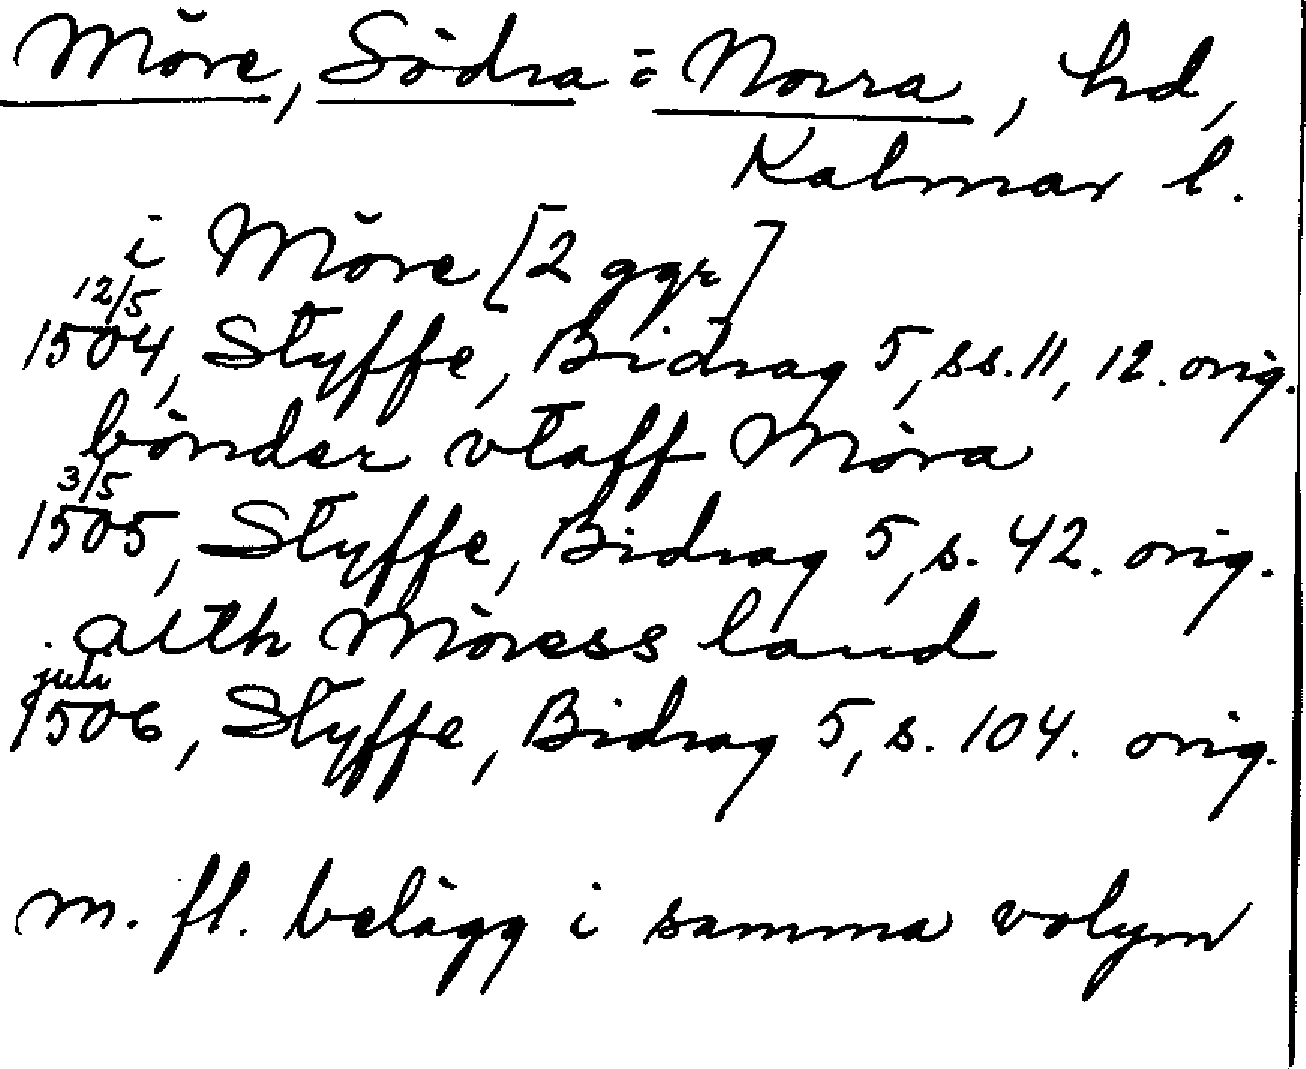 Möre, Södra o Norra, hd,
Kalmar l.
i Möre [2 ggr]
12/5
1504, Styffe, Bidrag 5, ss. 11, 12. orig.
bönder vtaff Möra
3/5
1505, Styffe, Bidrag 5, s. 42. orig.
alth Möress land
juli
1506, Styffe, Bidrag 5, s. 104. orig.
m. fl. belägg i samma volym